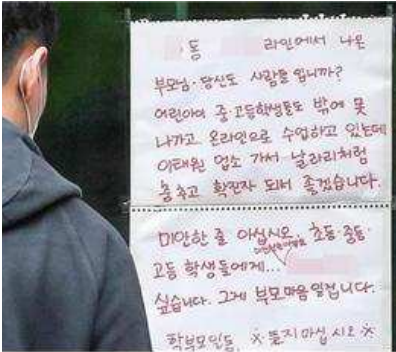 동 라인에서 나온
부모님·당신도 사람들 입니까?
어린아이 중·고등학생들도 밖에 못
나가고 온라인으로 수업하고 있는데
이태원 업소 가서 날라리처럼
춤추고 확진자 되서 좋겠습니다.
미안한 줄 아십시오. 초등·중등·
고등 학생들에게...
싶습니다. 그게 부모마음일겁니다.
학부모인듬, ※ 뜯지마십시오 ※